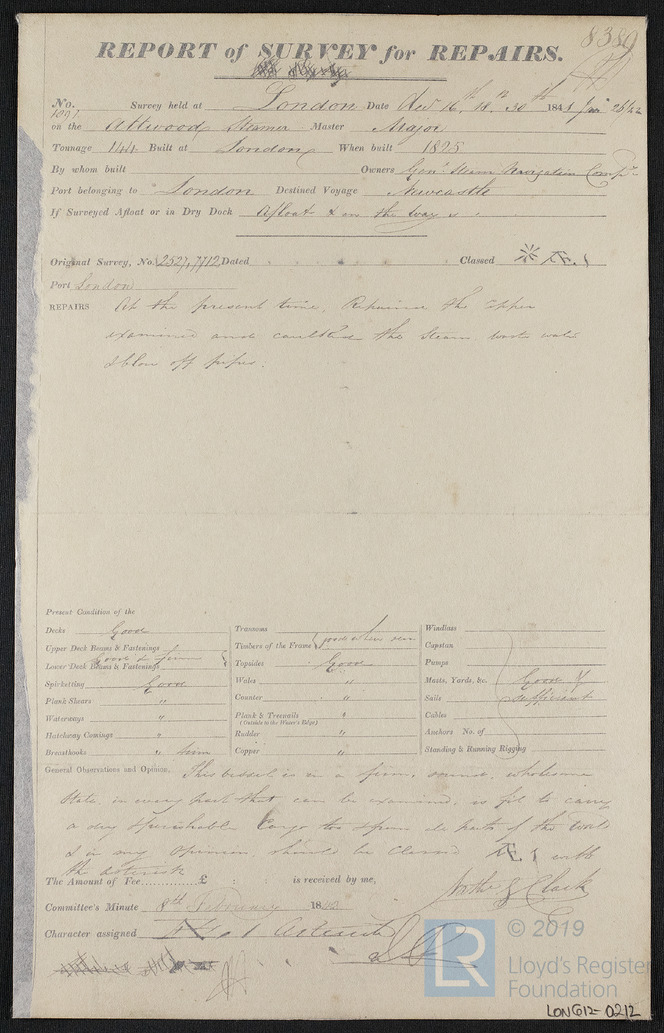 8389
REPORT of SURVEY for REPAIRS.
No. 1097 Survey held at London Date Dec 16th 18th 30th 1841 Jan 26/42
on the Attwood Steamer Master Major
Tonnage 144 Built at London When built 1825
By whom built Owners Genl Steam Navigation Compy
Port belonging to London Destined Voyage Newcastle
If Surveyed Afloat or in Dry Dock Afloat & on the ways
Original Survey, No. 2527, 7712 Dated Classed Æ.1
Port London
REPAIRS At the present time, Repaired the Upper
examined and caulked the Steam, waste water
& blow off pipes.
Present Condition of the
Decks Good
Upper Deck Beams & Fastenings
Lower Deck Beams & Fastenings Good & firm
Spirketting Good
Plank Shears "
Waterways "
Hatchway Comings "
Breasthooks " firm
Transoms
Timbers of the Frame good when seen
Topsides Good
Wales "
Counter "
Plank & Treenails "
(Outside to the Water's Edge)
Rudder "
Copper "
Windlass
Capstan
Pumps
Masts, Yards, &c. Good &
Sails sufficient
Cables
Anchors No. of
Standing & Running Rigging
General Observations and Opinion, This vessel is in a firm, sound, wholesome
state, in every part that can be examined, is fit to carry
a dry & perishable Cargo to & from all parts of the World
& in my opinion, should be Classed Æ.1 with
the asterisk
The Amount of Fee £ : : is received by me,
Clark
Committee's Minute 8th February 1842
Character assigned 1 Asterisk
© 2019
LR
Lloyd's Register
Foundation
LON612-0212